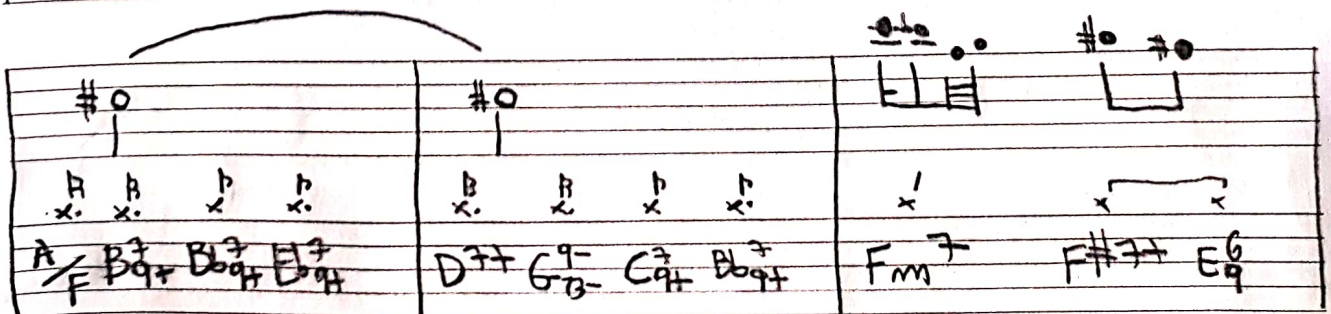 A/F B7 9+ Bb7 9+ Eb7 9+ D7+ G9- 13- C7 9+ Bb7 9+ Fm7 F#7+ E6 9